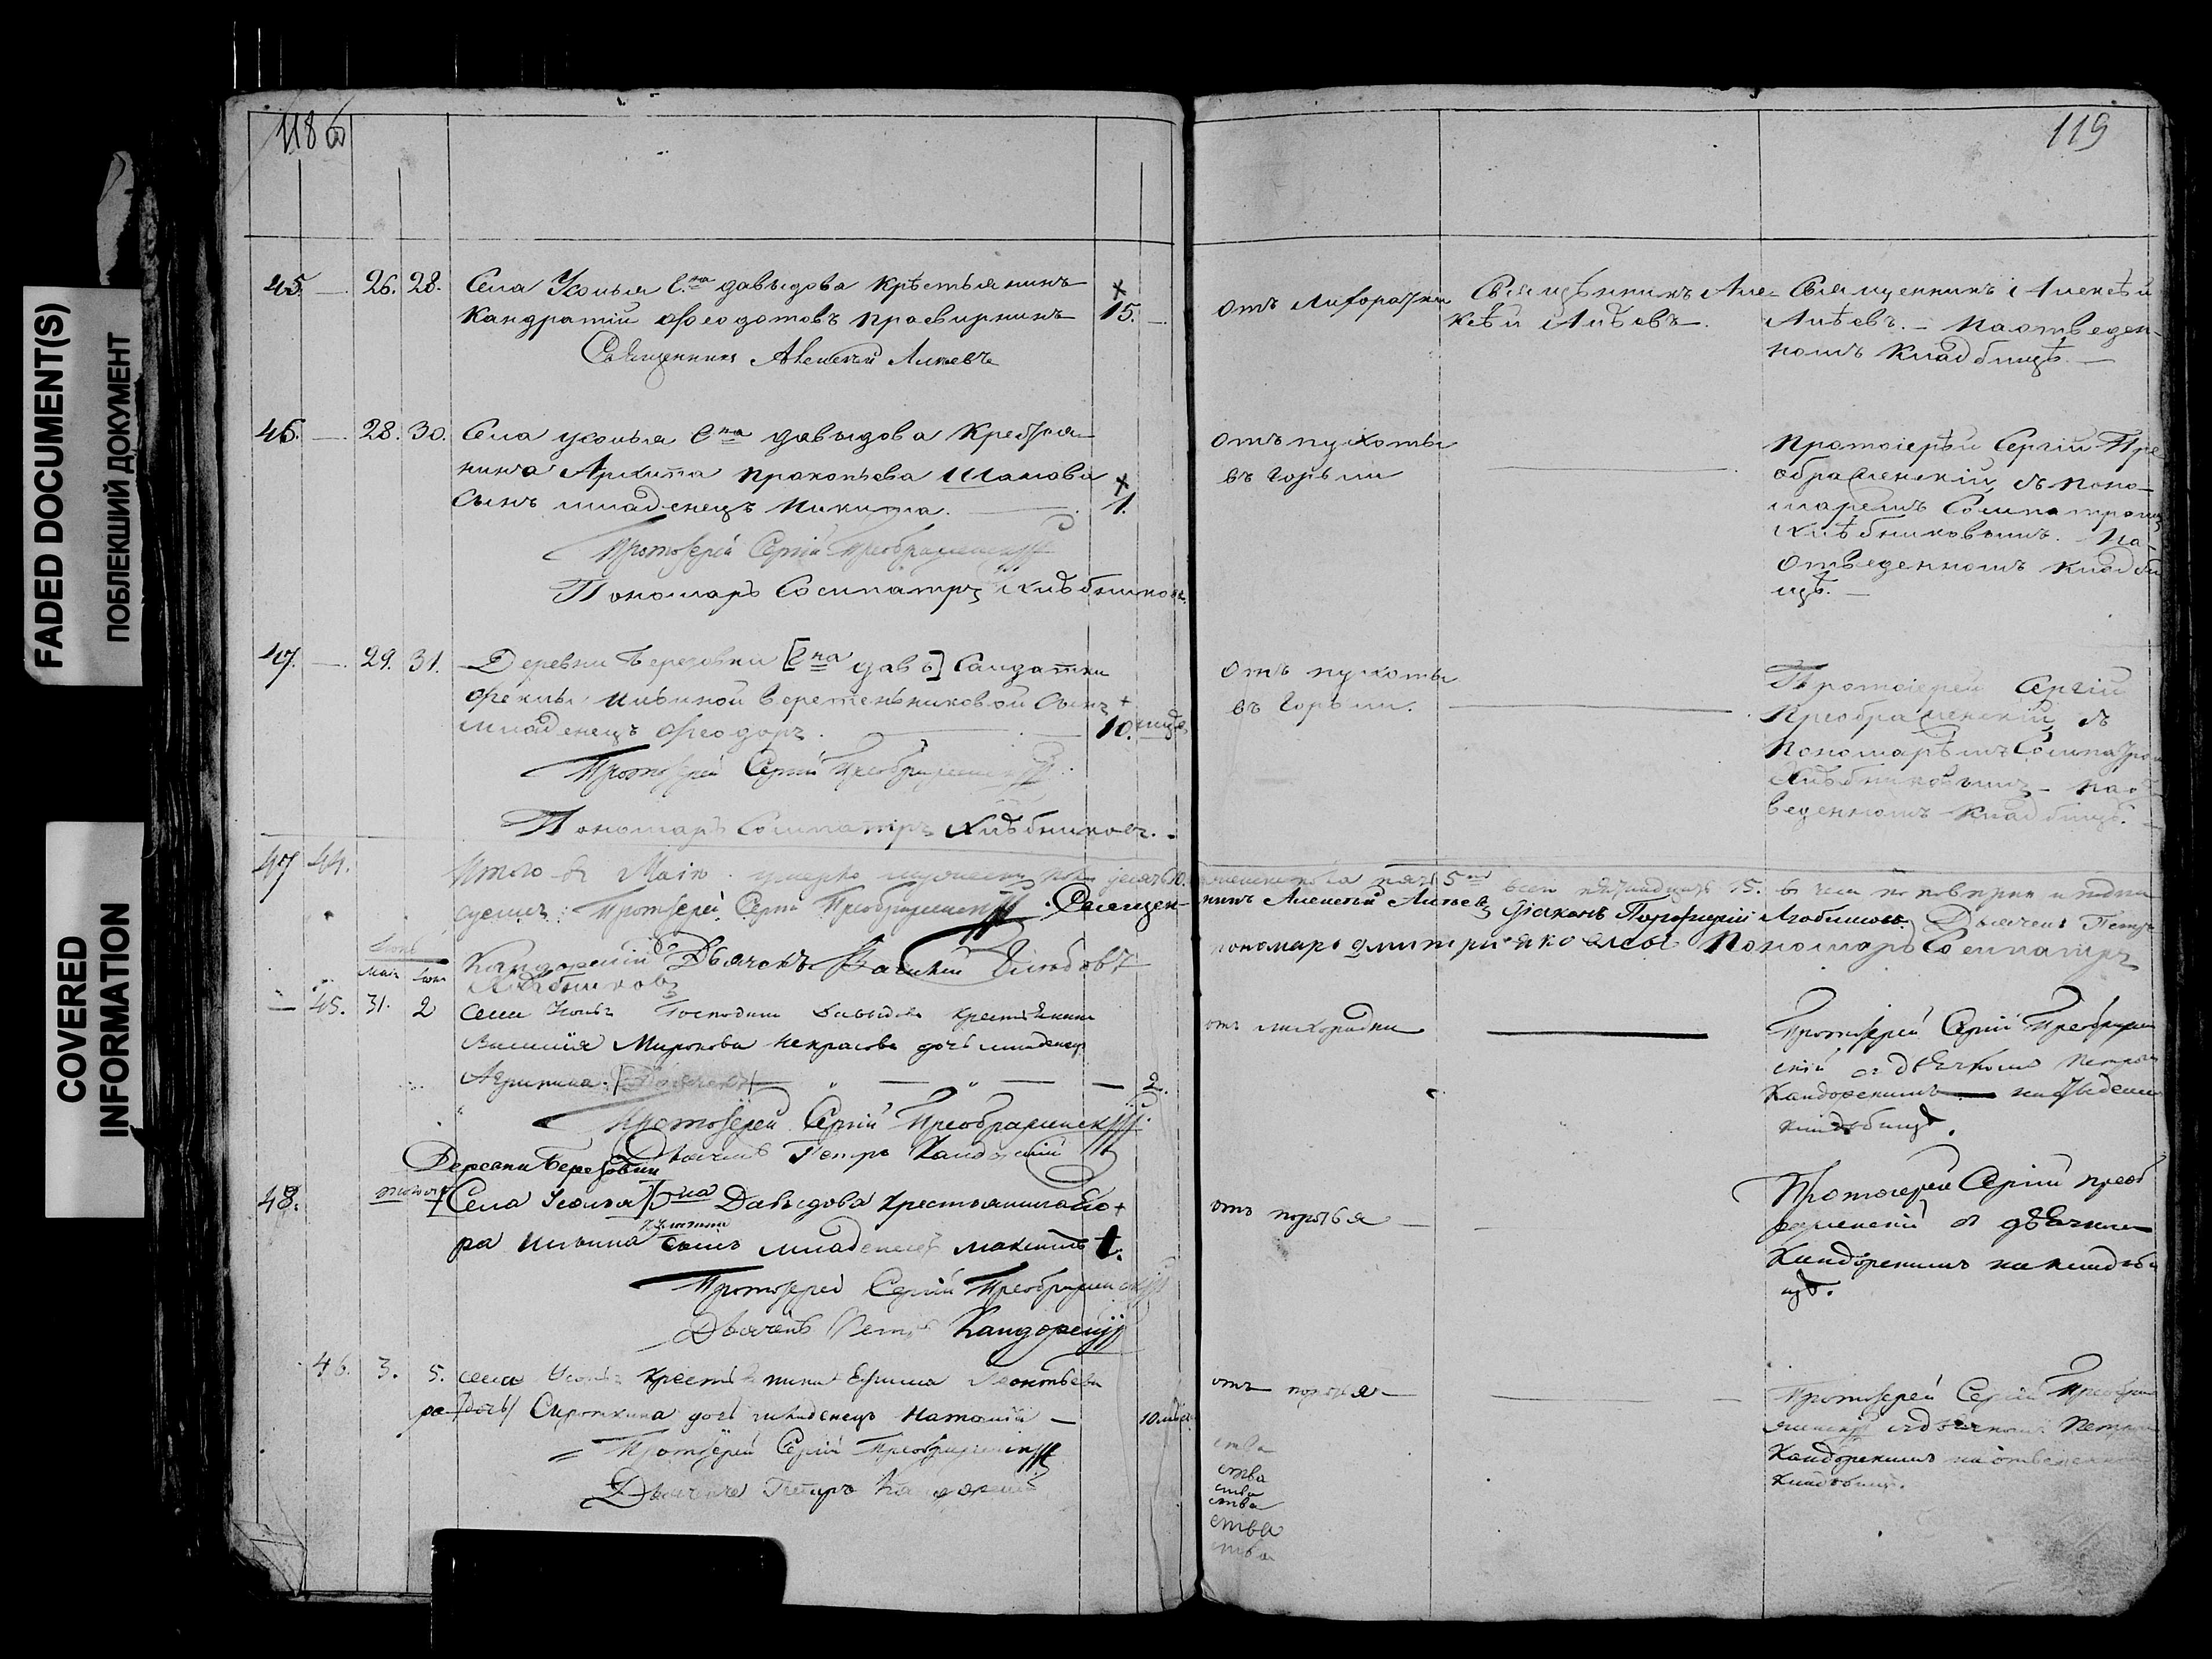 FADED DOCUMENT(S)
ПОБЛЕКШИЙ ДОКУМЕНТ
COVERED
INFORMATION
118 об
119
45. — 26. 28. Села Усолья Г.на давыдова крѣстьянинъ
Кандратій Ѳеодотовъ просвирнинъ 15.
Священникъ Алексѣй Алѣевъ
отъ лихорадки
Священникъ Але-
ксѣй Алѣевъ.
Священникъ Алексѣй
Алѣевъ. — На отведен-
номъ кладбищѣ. —
46. — 28. 30. Села усолья Г.на давыдова Крестья-
нина Архипа прокопьева Шамова
сынъ младенецъ Никита. 1.
Протоіерей Сергій Преображенскій
Пономарь Сосипатръ Хлѣбниковъ.
отъ пухоты
въ горлѣ
Протоіерѣй Сергій Пре
ображенскій съ поно-
маремъ Сосипатромъ
Хлѣбниковымъ. На-
отведенномъ кладби
щѣ. —
47. — 29. 31. Деревни Березовки [Г.на дав.] Салдатки
Ѳеклы Ильиной веретенниковой сынъ
младенецъ Ѳеодоръ. 10. нидѣ
Протоіерей Сергій Преображенскій
Пономарь Сосипатръ Хлѣбниковъ. -
отъ пухоты
въ горлѣ.
Протоіерей Сергій
Преображенскій съ
пономарѣмъ Сосипатром
Хлѣбниковымъ - на от
веденномъ кладбищѣ.
47 44. Итого въ Маіѣ умерло мужеска пола десять 10. женска пола пять 5 всего пятнадцать 15. въ чемъ по поверкѣ и подпи
суемся: Протоіерей Сергій Преображенскій. Священ-никъ Алексѣй Алѣевъ Діаконъ Порфирій Любимовъ. Дьячекъ Петръ
Кандорскій Дьячекъ Василій пономарь дмитрій Пономарь Сосипатръ
Хлѣбниковъ
Іюнь
Мая Іюн
— 45. 31. 2 села Усолья Господина Давыдова крестьянина
Василія Миронова Некрасова дочь младенецъ
Агрипина. 2.
Протоіерей Сергій Преображенскій.
Дьячекъ Петръ Кандорскій
отъ лихорадки
Протоіерей Сергій Преображен
скій съ дьячкомъ Петромъ
Кандорскимъ — на отведенн
кладбищѣ.
Деревни Березовки
48. Села Усолья Г.на Давыдова крестьянина
ра Ильина сынъ младенецъ Максимъ 1.
Протоіерей Сергій Преображенскій
Дьячекъ Петръ Кандорскій
отъ поноса —
Протоіерей Сергій преоб
раженскій съ дьячкомъ
Кандорскимъ на кладби
щѣ.
46. 3. 5. села Усолья крестьянина Ефима Леонтьева
Сироткина дочь младенецъ Наталія — 10 нидѣ
Протоіерей Сергій Преображенскій
Дьячекъ Петръ Кандорскій
отъ поноса —
Протоіерей Сергій Преображ
женскій съ дьячкомъ Петром
Кандорскимъ на отведенном
кладбищѣ.
ства
ства
ства
ства
ства
ства